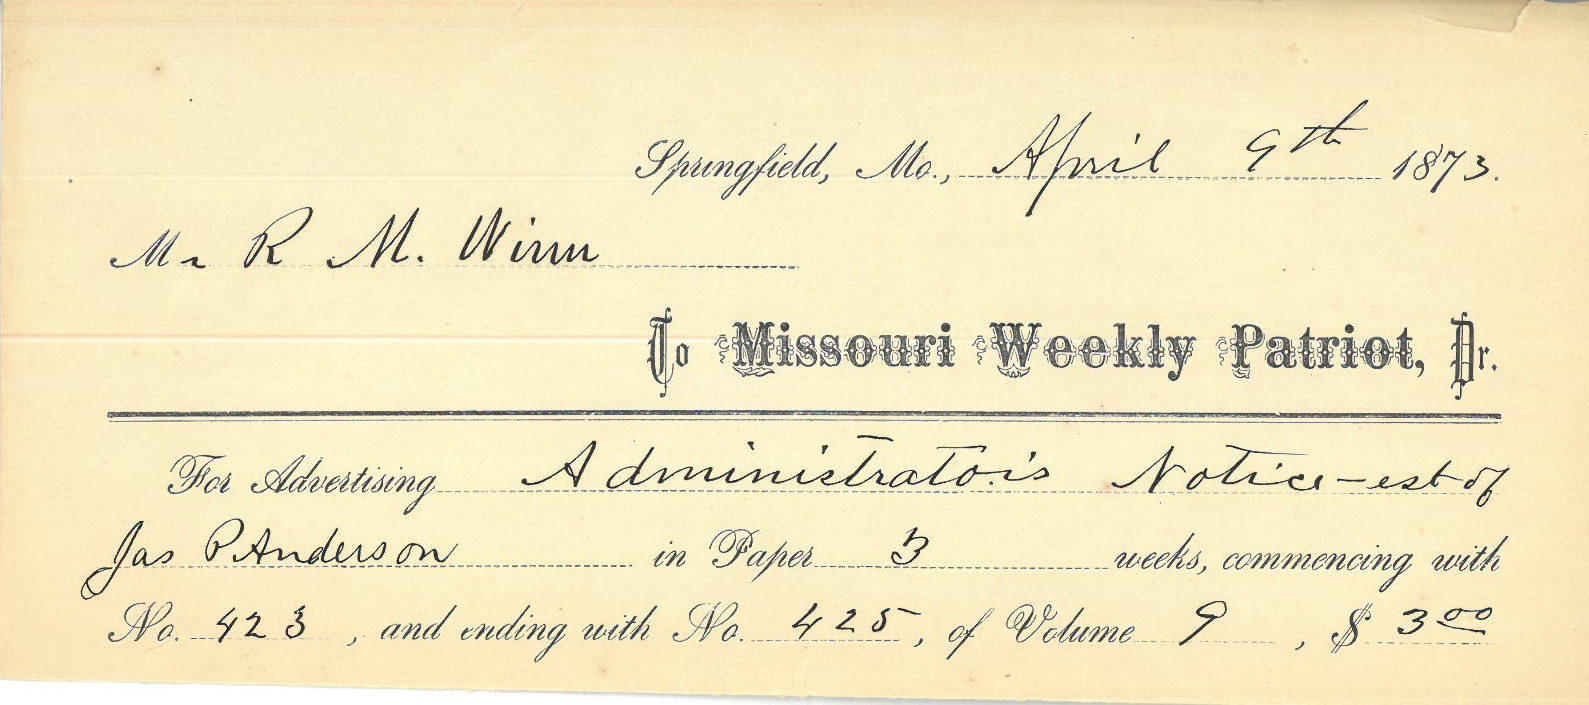 Springfield, Mo., April 9th 1873.
Mr R M. Winn
To Missouri Weekly Patriot, Dr.
For Advertising Administrator's Notice - est of
Jas P Anderson in Paper 3 weeks, commencing with
No. 423, and ending with No. 425, of Volume 9, $ 3 00